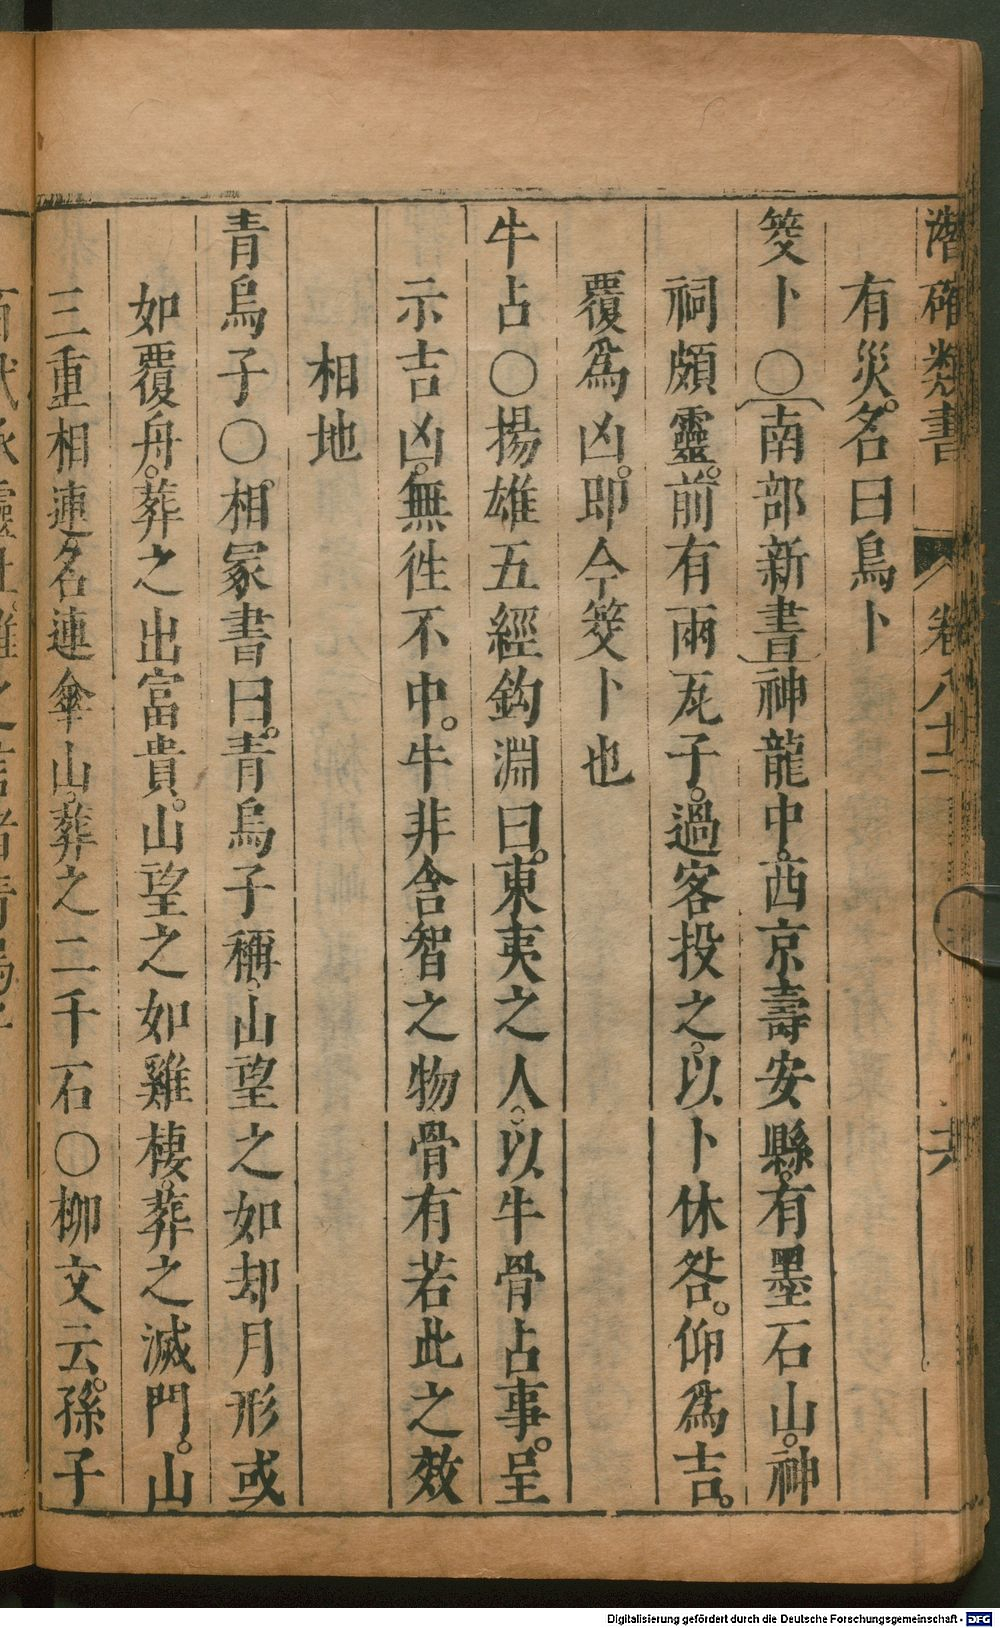 潛確類書 卷八十二 共
有災。名曰鳥卜
筊卜○南部新書神龍中。西京壽安縣。有墨石山。神
祠頗靈。前有兩瓦子。過客投之。以卜休咎。仰爲吉。
覆爲凶。即今筊卜也
牛占○揚雄五經鈎淵曰。東夷之人。以牛骨占事。呈
示吉凶。無徃不中。牛非含智之物骨有若此之效
相地
青烏子○相冢書曰。青烏子稱。山望之如却月形或
如覆舟。葬之出富貴。山望之如雞棲。葬之滅門。山
三重相連。名連傘山。葬之二千石○柳文云。孫子
Digitalisierung gefördert durch die Deutsche Forschungsgemeinschaft - DFG